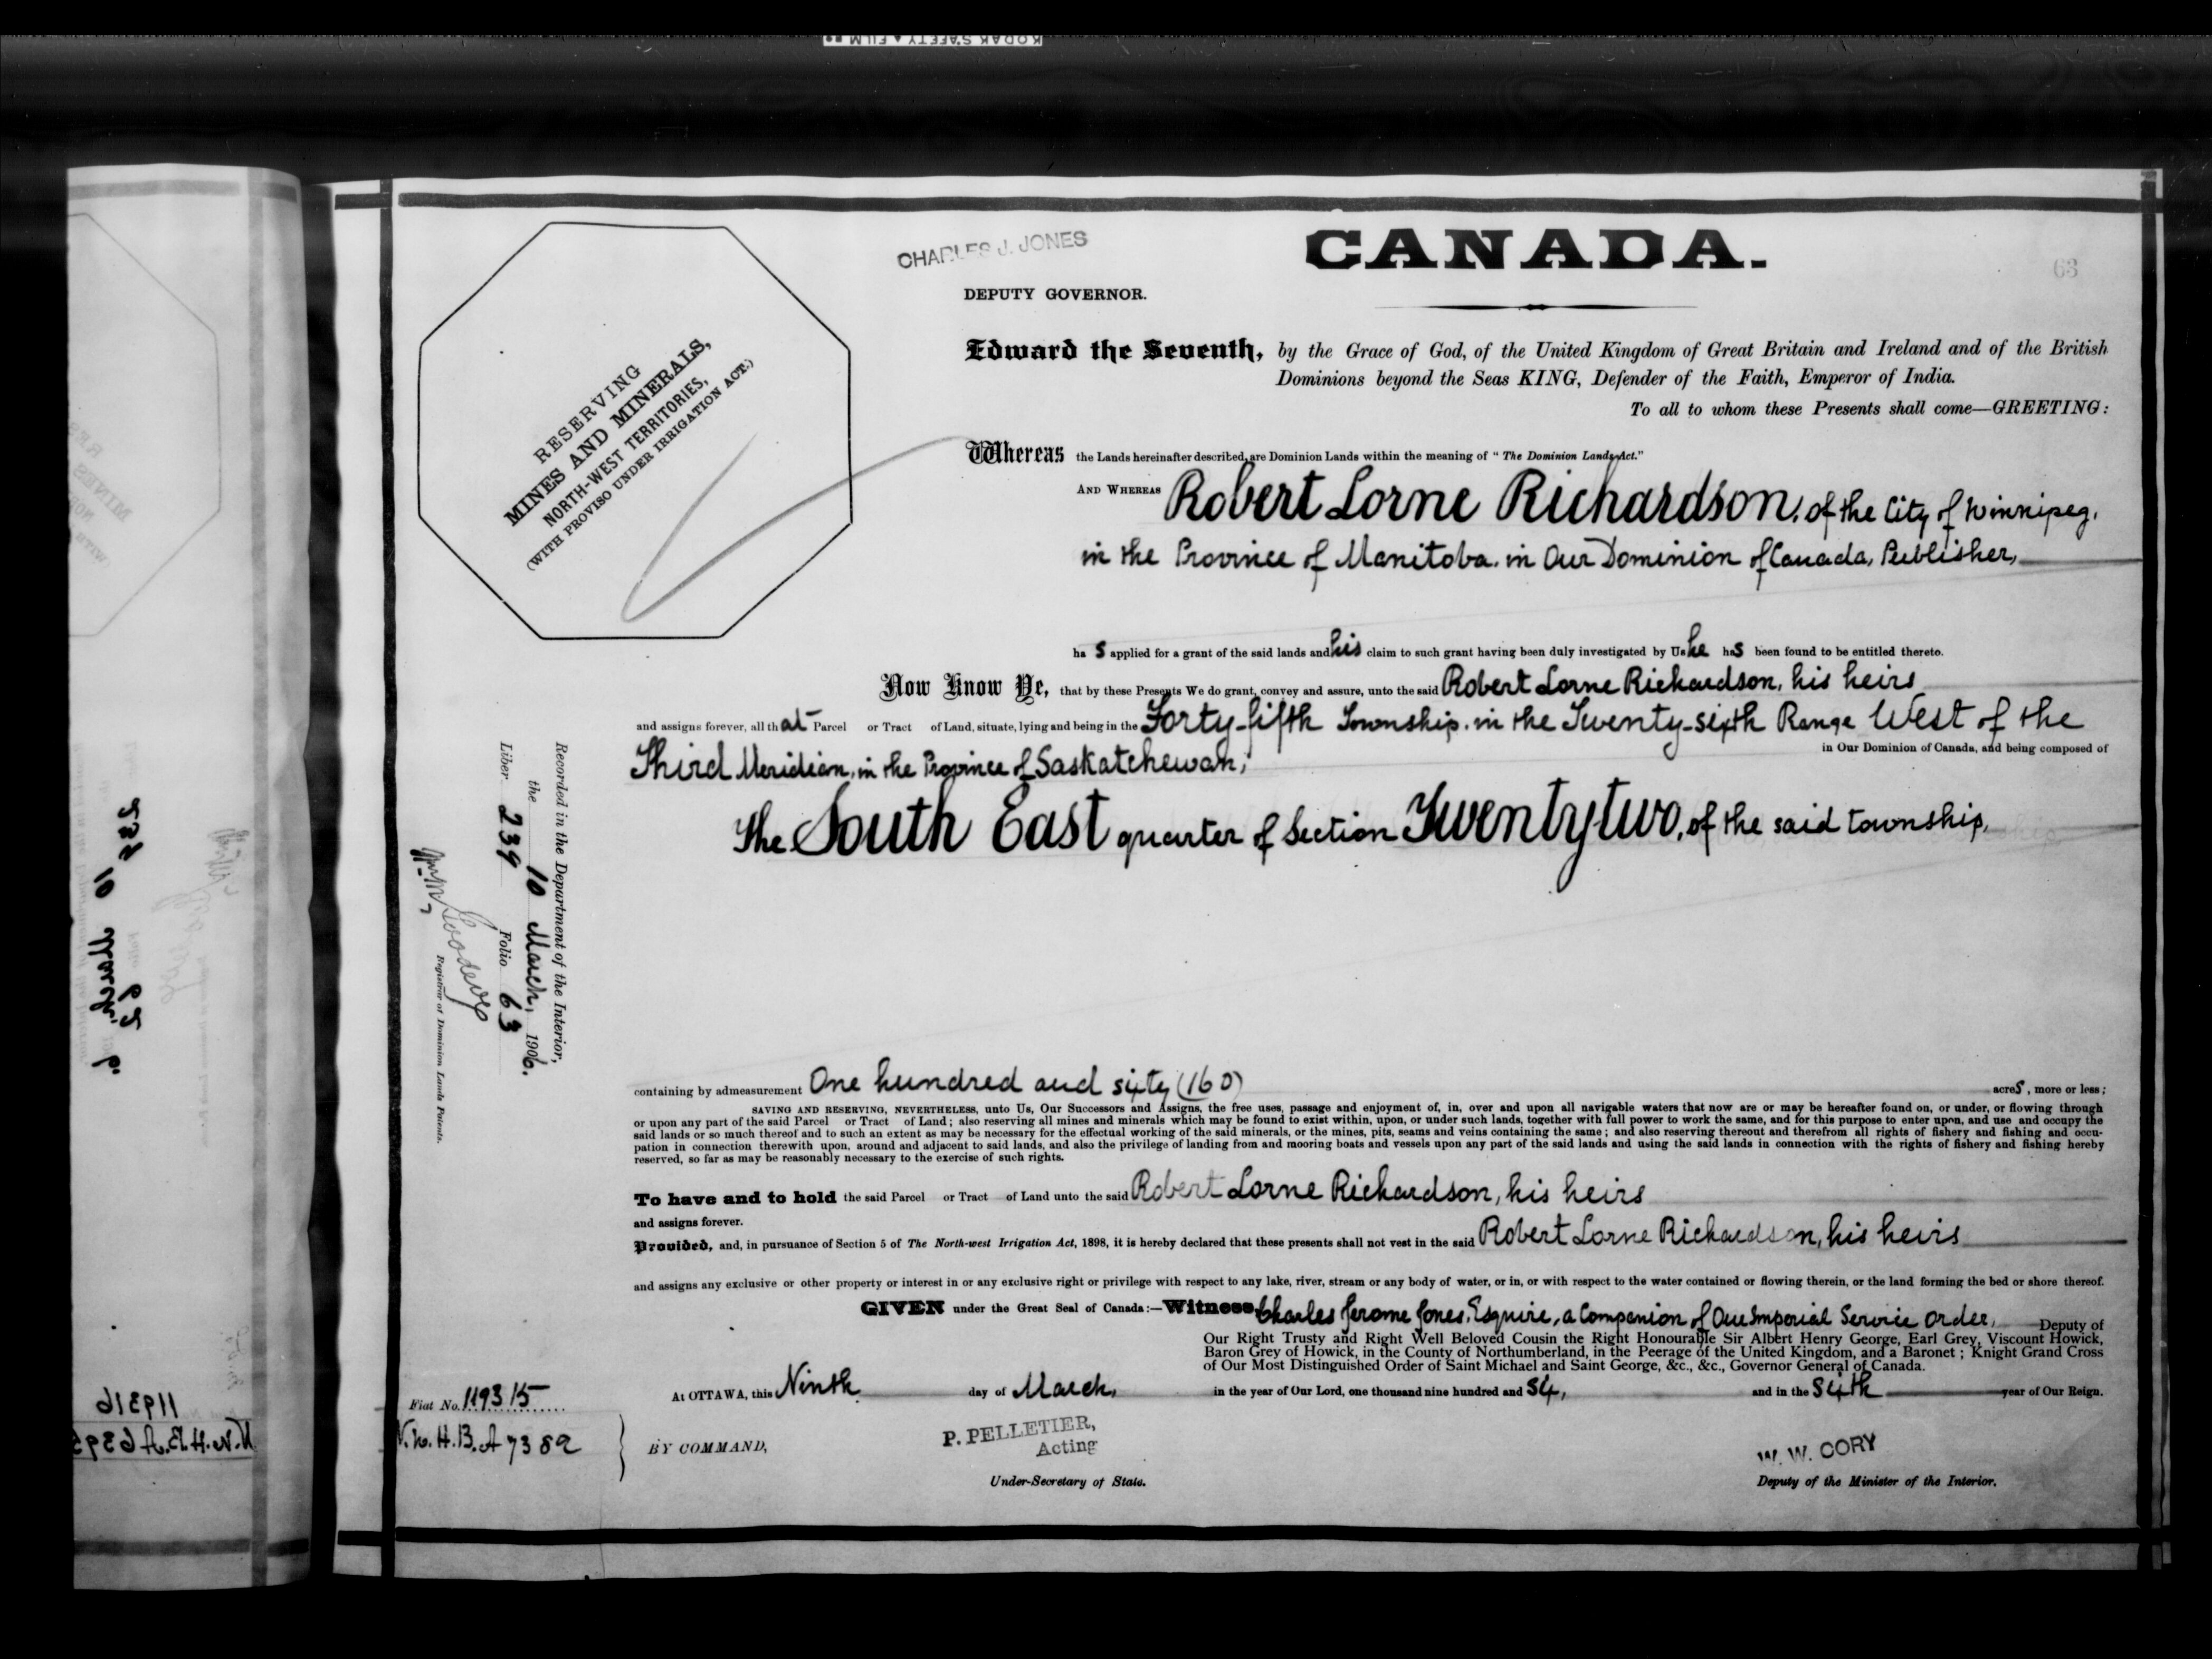 KODAK SAFETY FILM
CHARLES J. JONES
CANADA.
63
DEPUTY GOVERNOR.
RESERVING
MINES AND MINERALS,
NORTH-WEST TERRITORIES,
(WITH PROVISO UNDER IRRIGATION ACT.)
Edward the Seventh, by the Grace of God, of the United Kingdom of Great Britain and Ireland and of the British
Dominions beyond the Seas KING, Defender of the Faith, Emperor of India.
To all to whom these Presents shall come—GREETING:
Whereas the Lands hereinafter described, are Dominion Lands within the meaning of "The Dominion Lands Act."
AND WHEREAS Robert Lorne Richardson, of the City of Winnipeg,
in the Province of Manitoba, in Our Dominion of Canada, Publisher,
has applied for a grant of the said lands and his claim to such grant having been duly investigated by Us he has been found to be entitled thereto.
Now Know Ye, that by these Presents We do grant, convey and assure, unto the said Robert Lorne Richardson, his heirs
and assigns forever, all that Parcel or Tract of Land, situate, lying and being in the Forty-fifth Township, in the Twenty-sixth Range West of the
in Our Dominion of Canada, and being composed of
Third Meridian, in the Province of Saskatchewan,
The South East quarter of Section Twenty-two, of the said township,
Recorded in the Department of the Interior,
the 10 March, 1906.
Liber 239 Folio 63
Wm M Goodeve
Registrar of Dominion Lands Patents.
containing by admeasurement One hundred and sixty (160) acres, more or less;
SAVING AND RESERVING, NEVERTHELESS, unto Us, Our Successors and Assigns, the free uses, passage and enjoyment of, in, over and upon all navigable waters that now are or may be hereafter found on, or under, or flowing through
or upon any part of the said Parcel or Tract of Land; also reserving all mines and minerals which may be found to exist within, upon, or under such lands, together with full power to work the same, and for this purpose to enter upon, and use and occupy the
said lands or so much thereof and to such an extent as may be necessary for the effectual working of the said minerals, or the mines, pits, seams and veins containing the same; and also reserving thereout and therefrom all rights of fishery and fishing and occu-
pation in connection therewith upon, around and adjacent to said lands, and also the privilege of landing from and mooring boats and vessels upon any part of the said lands and using the said lands in connection with the rights of fishery and fishing hereby
reserved, so far as may be reasonably necessary to the exercise of such rights.
To have and to hold the said Parcel or Tract of Land unto the said Robert Lorne Richardson, his heirs
and assigns forever.
Provided, and, in pursuance of Section 5 of The North-west Irrigation Act, 1898, it is hereby declared that these presents shall not vest in the said Robert Lorne Richardson, his heirs
and assigns any exclusive or other property or interest in or any exclusive right or privilege with respect to any lake, river, stream or any body of water, or in, or with respect to the water contained or flowing therein, or the land forming the bed or shore thereof.
GIVEN under the Great Seal of Canada:—Witness, Charles Jerome Jones, Esquire, a Companion of Our Imperial Service Order, Deputy of
Our Right Trusty and Right Well Beloved Cousin the Right Honourable Sir Albert Henry George, Earl Grey, Viscount Howick,
Baron Grey of Howick, in the County of Northumberland, in the Peerage of the United Kingdom, and a Baronet; Knight Grand Cross
of Our Most Distinguished Order of Saint Michael and Saint George, &c., &c., Governor General of Canada.
At OTTAWA, this Ninth day of March, in the year of Our Lord, one thousand nine hundred and Six, and in the Sixth year of Our Reign.
Fiat No. 119315
N.W.H.B.A 7382
BY COMMAND,
P. PELLETIER,
Acting
Under-Secretary of State.
W. W. CORY
Deputy of the Minister of the Interior.